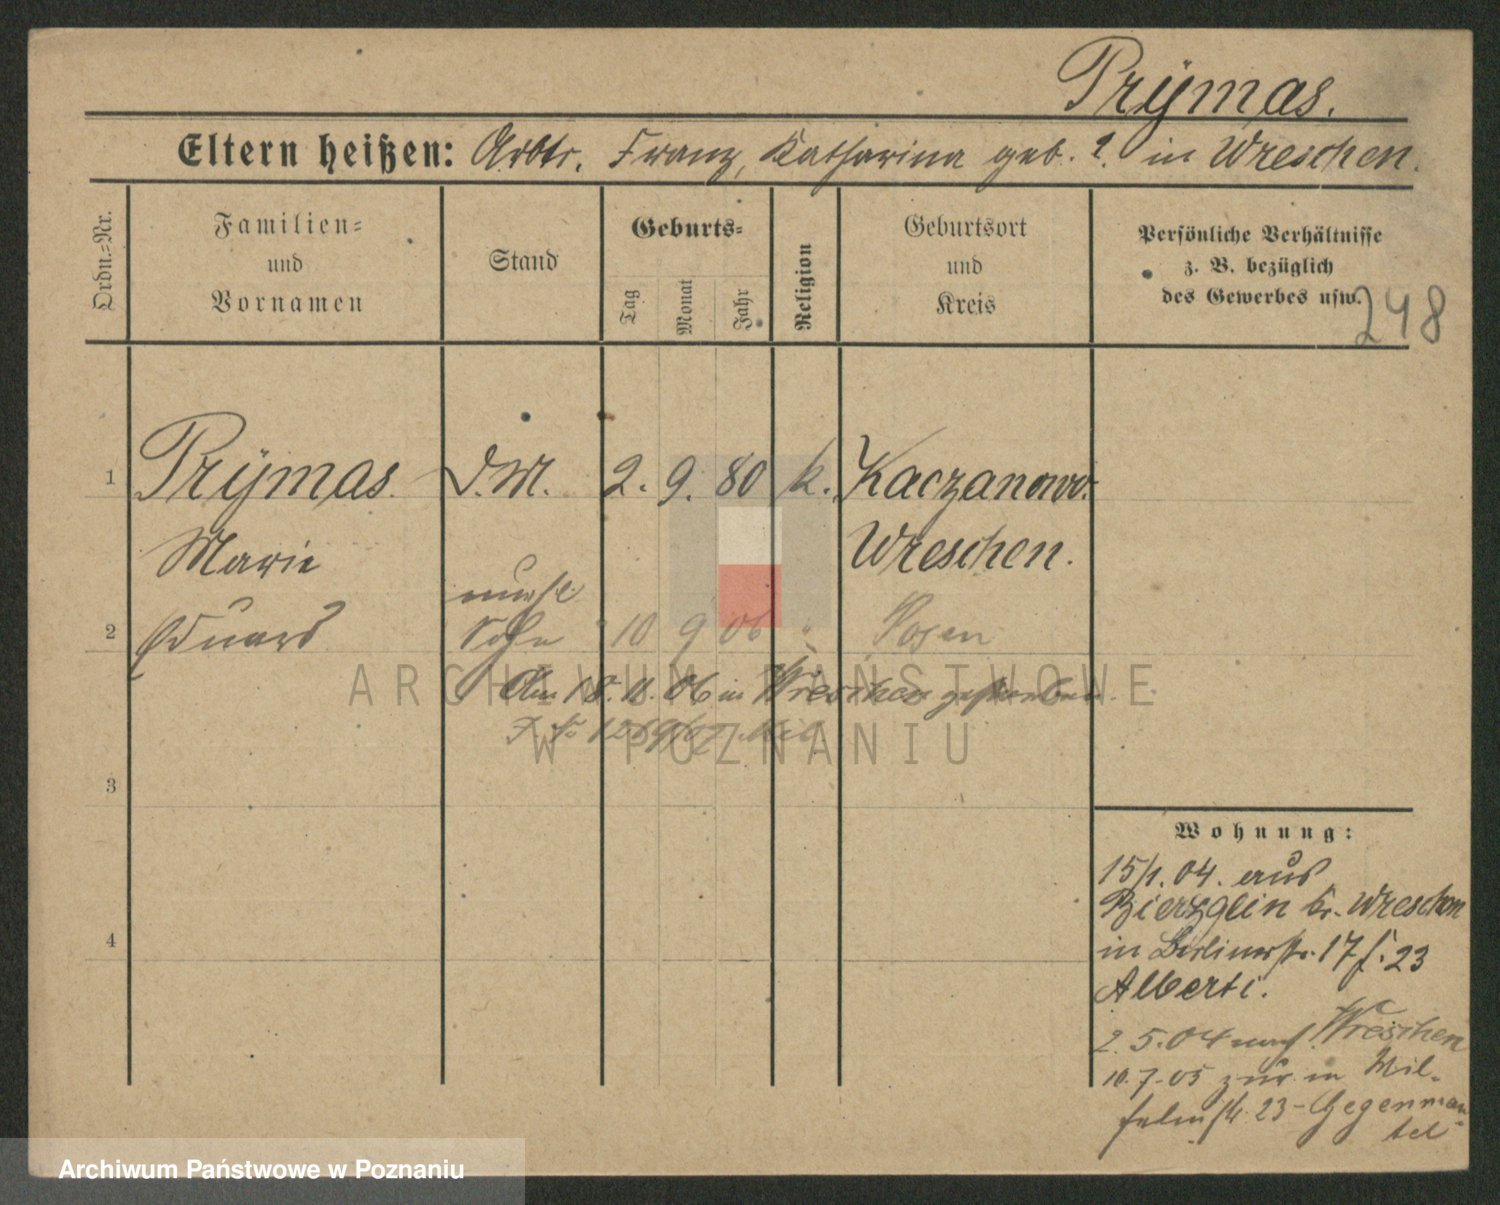 Prÿmas.
Eltern heißen: Arbtr. Franz, Katharina geb. ?. in Wreschen.
Ordn.=Nr.
Familien=
und
Vornamen
Stand
Geburts=
Tag
Monat
Jahr
Religion
Geburtsort
und
Kreis
Persönliche Verhältnisse
z. B. bezüglich
des Gewerbes usw.
248
1 Prÿmas D.M. 2. 9. 80 k. Kaczanowo.
Marie Wreschen.
unehl
2 Eduard Sohn " 10 9 06 " Posen
Am 18.11.06 in Wreschen gestorben.
3
4
Wohnung:
15/1. 04. aus
Bierzglin Kr. Wreschen
in Berlinerstr. 17 f. 23
Alberti.
2.5.04 nach Wreschen
10.7.05 zur. in Wil-
helmstr. 23 - Gegenman
tel
ARCHIWUM PAŃSTWOWE
W POZNANIU
Archiwum Państwowe w Poznaniu